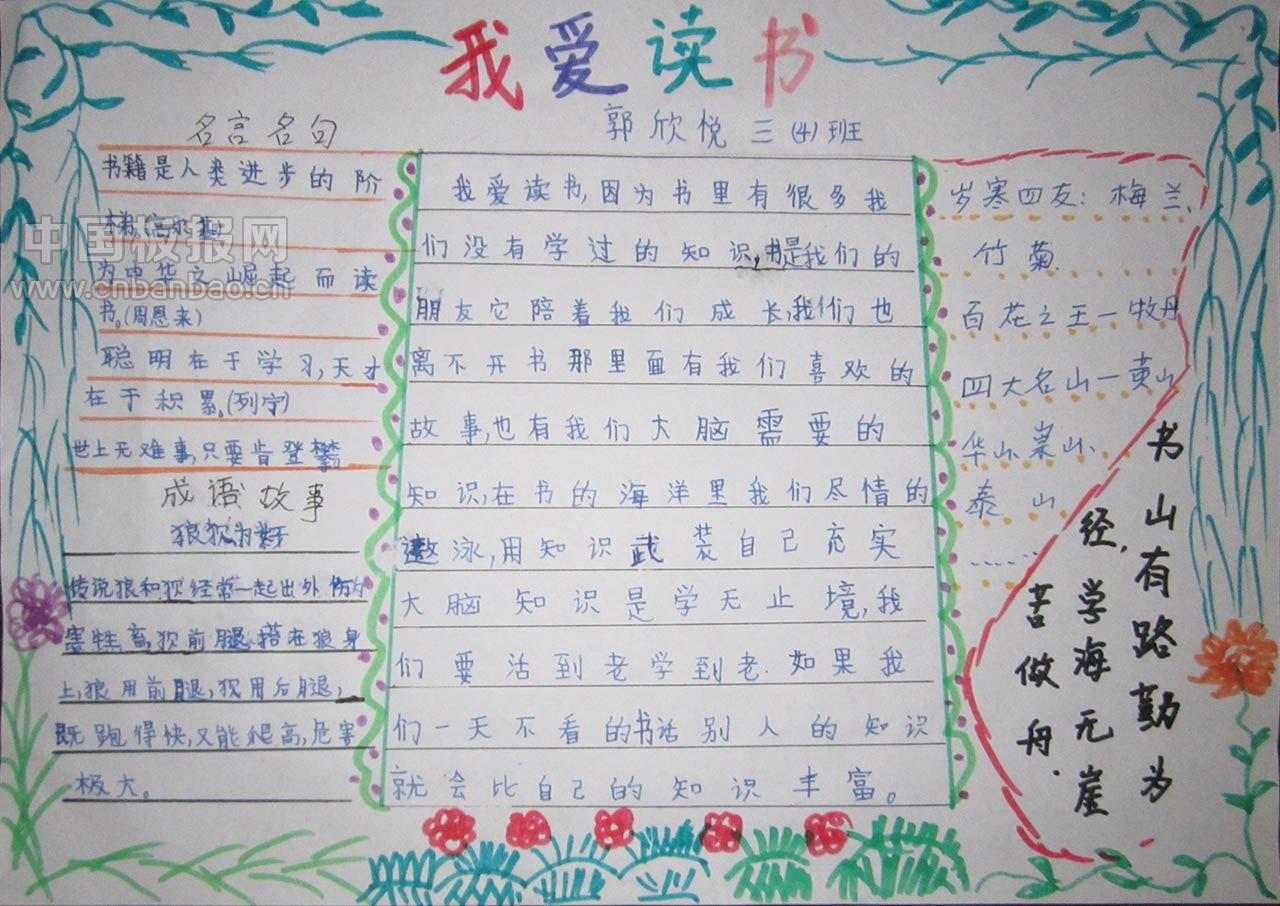 我爱读书
郭欣悦 三(4)班
名言名句
书籍是人类进步的阶
梯。(高尔基)
为中华之崛起而读
书。(周恩来)
聪明在于学习,天才
在于积累。(列宁)
世上无难事,只要肯登攀
成语故事
狼狈为奸
传说狼和狈经常一起出外伤
害牲畜,狈前腿搭在狼身
上,狼用前腿,狈用后腿,
既跑得快,又能爬高,危害
极大。
我爱读书,因为书里有很多我
们没有学过的知识,书是我们的
朋友它陪着我们成长,我们也
离不开书那里面有我们喜欢的
故事,也有我们大脑需要的
知识,在书的海洋里我们尽情的
遨泳,用知识武装自己充实
大脑知识是学无止境,我
们要活到老学到老.如果我
们一天不看的书话别人的知识
就会比自己的知识丰富。
岁寒四友:梅兰、
竹菊.
百花之王一牧丹
四大名山一黄山
华山、嵩山、
泰山
……
书山有路勤为
经,学海无崖
苦做舟.
中国板报网
www.cnbanbao.cn